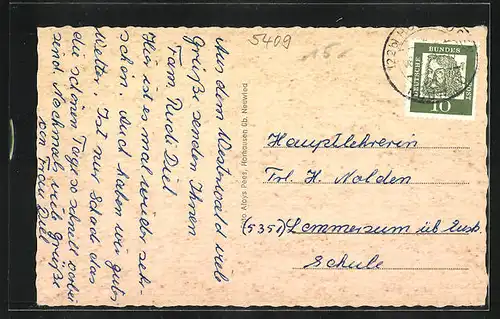 5409
15.-
DEUTSCHE BUNDESPOST
10
Aus dem Westerwald viele
Grüße senden Ihnen
Fam. Rudi Diel
Hier ist es mal wieder sehr
schön. Auch haben wir gutes
Wetter. Ist nur Schade das
die schönen Tage so schnell vorbei
sind Nochmals viele Grüße
von Frau Diel
Foto Aloys Pees, Horhausen üb. Neuwied
Hauptlehrerin
Frl. H. Nolden
(5357) Lommersum üb. Eusk.
Schule